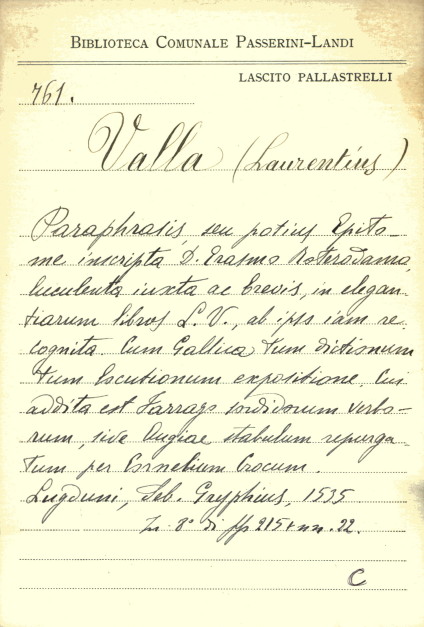 BIBLIOTECA COMUNALE PASSERINI-LANDI
LASCITO PALLASTRELLI
761.
Valla (Laurentius)
Paraphrasis, seu potius Epito-
me inscripta D. Erasmo Roterodamo,
luculenta iuxta ac brevis, in elegan-
tiarum libros L. V., ab ipso iam re
cognita. Cum Gallica tum dictionum
tum locutionum expositione. Cui
addita est Farrago sordidorum verbo-
rum, sive Augiae stabulum repurga-
tum per Cornelium Crocum.
Lugduni, Seb. Gryphius, 1535
In 8° di pp 215 + nn. 22.
C